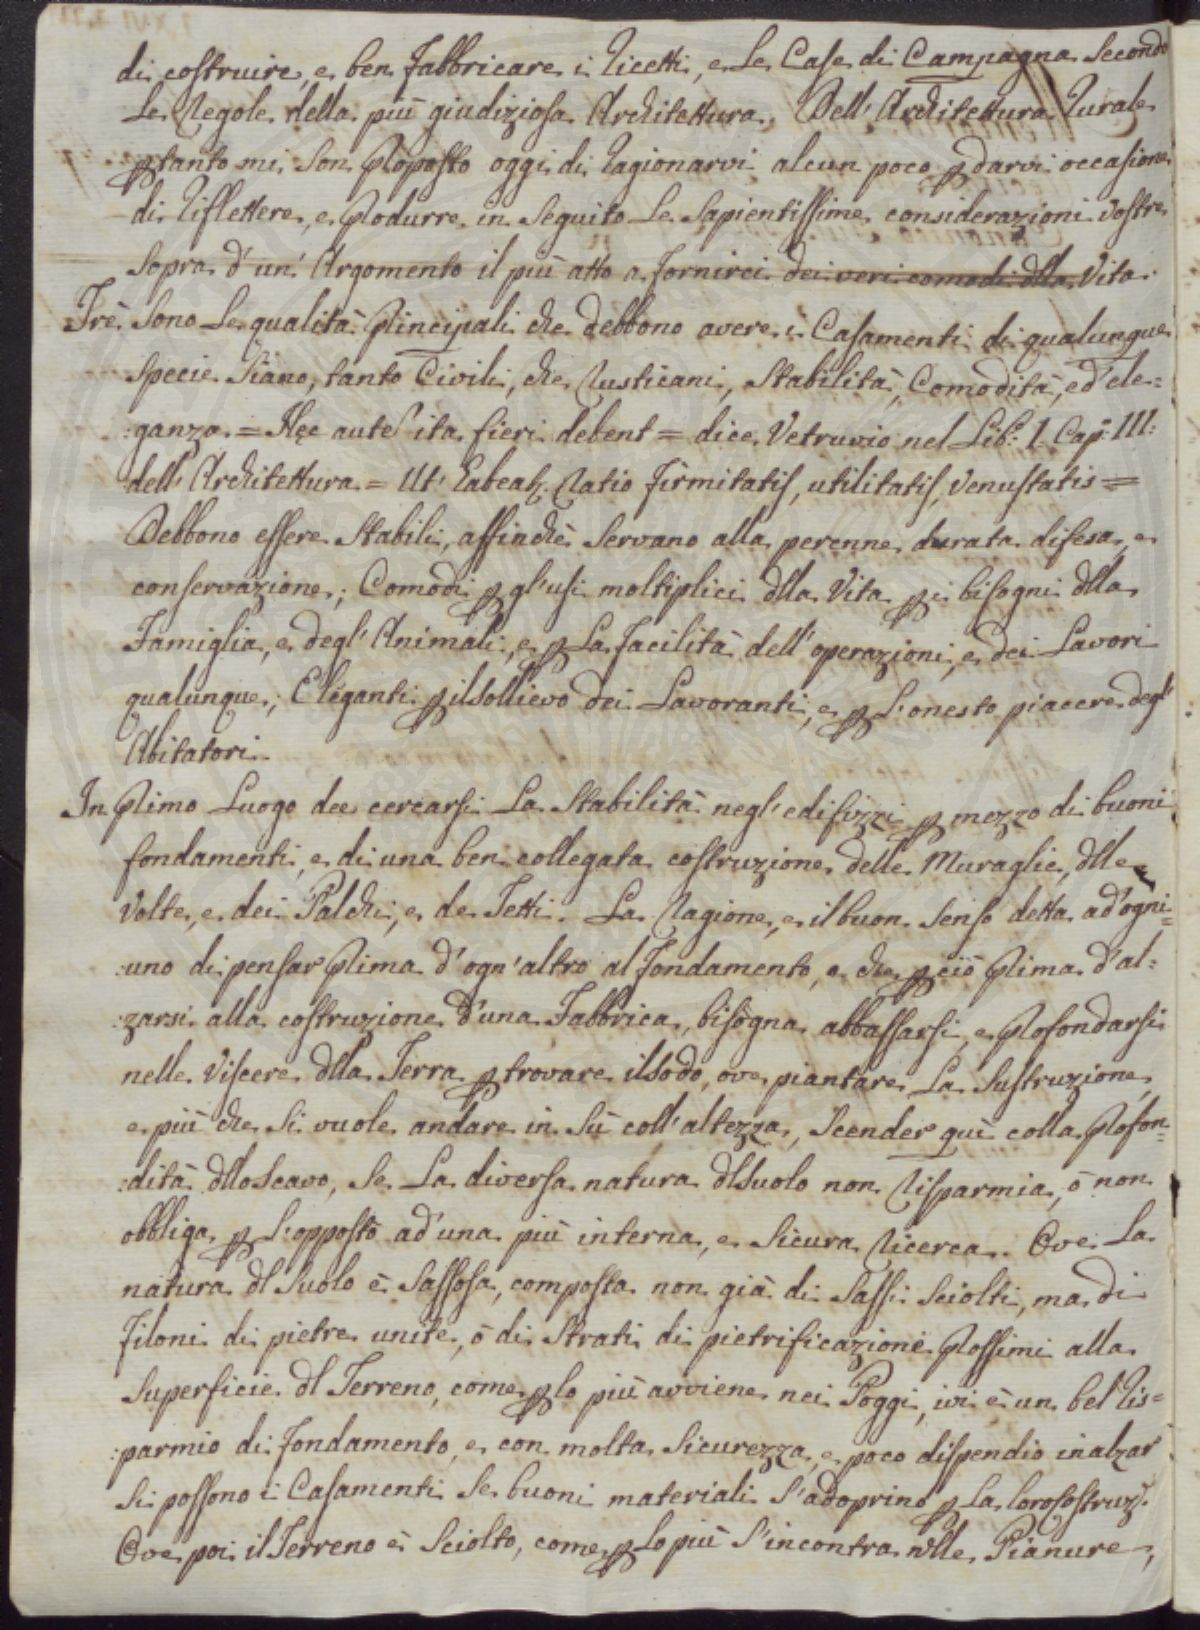 di costruire, e ben Fabbricare i Ricetti, e Le Case di Campagna Secondo
Le Regole della più giudiziosa Architettura. Dell'Architettura Rurale
ptanto mi Son Proposto oggi di Ragionarvi alcun poco p darvi occasione
di Riflettere, e Produrre in Seguito Le Sapientissime considerazioni Vostre
Sopra d'un'Argomento il più atto a Fornirci dei veri comodi dlla Vita.
Trè Sono Le qualità Principali che debbono avere i Casamenti di qualunque
Specie Siano, tanto Civili, che Rusticani, Stabilità, Comodità, ed'ele:
:ganza. = Hęc aute ita fieri debent = dice Vetruvio nel Lib: I. Cap: III:
dell'Architettura = Ut' habeat Ratio Firmitatis, utilitatis, Venustatis =
Debbono essere Stabili, affinchè Servano alla perenne durata difesa, e
conservazione; Comodi p gl'usi moltiplici dlla Vita p i bisogni dlla
Famiglia, e degl'Animali, e p La Facilità dell'operazioni, e dei Lavori
qualunque; Eleganti p il Sollievo dei Lavoranti, e p L'onesto piacere degl'
Abitatori.
In Primo Luogo dee cercarsi La Stabilità negl'edifizzi p mezzo di buoni
fondamenti, e di una ben collegata costruzione delle Muraglie, dlle
Volte, e dei Palchi, e de Tetti. La Ragione, e il buon Senso detta ad'ogni=
:uno di pensar Prima d'ogn'altro al Fondamento, e che p ciò Prima d'al:
:zarsi alla costruzione d'una Fabbrica, bisogna abbassarsi, e Profondarsi
nelle Viscere dlla Terra p trovare il Sodo, ove piantare La Sustruzione,
e più che Si vuole andare in Sù coll'altezza, Scender giù colla Profon=
:dità dllo Scavo, Se La diversa natura dl Suolo non Risparmia, ò non
obbliga p L'opposto ad'una più interna, e Sicura Ricerca. Ove La
natura dl Suolo è Sassosa, composta non già di Sassi Sciolti, ma di
Filoni di pietre unite, ò di Strati di pietrificazione Prossimi alla
Superficie dl Terreno, come p lo più avviene nei Poggi, ivi è un bel Ris=
:parmio di Fondamento, e con molta Sicurezza, e poco dispendio inalzar
Si possono i Casamenti Se buoni materiali S'adoprino p La loro Sostruz.
Ove poi il Terreno è Sciolto, come p Lo più S'incontra nlle Pianure,